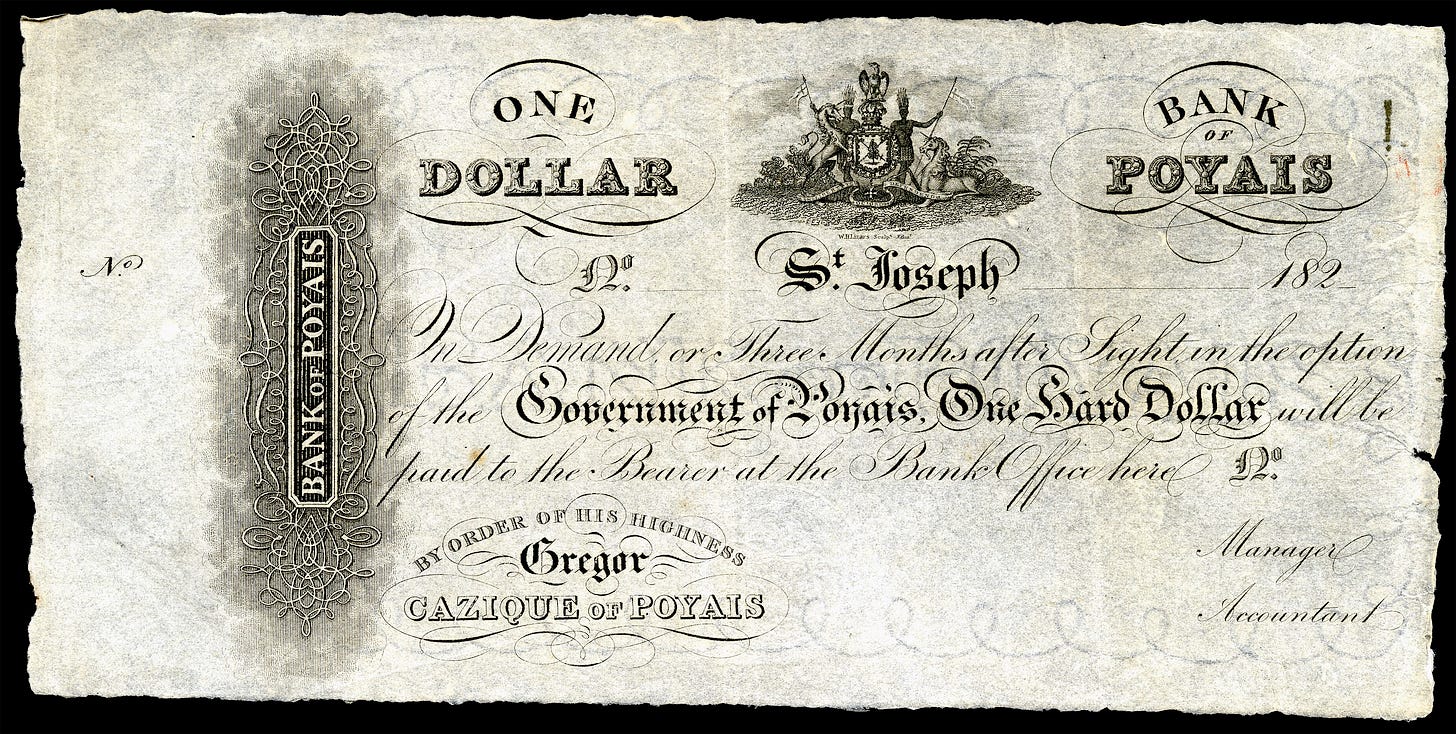 ONE
DOLLAR
BANK
OF
POYAIS
No
No.
St. Joseph
182
BANK OF POYAIS
On Demand, or Three Months after Sight, in the option
of the Government of Poyais, One Hard Dollar will be
paid to the Bearer at the Bank Office here No.
BY ORDER OF HIS HIGHNESS
Gregor
CAZIQUE OF POYAIS
Manager
Accountant